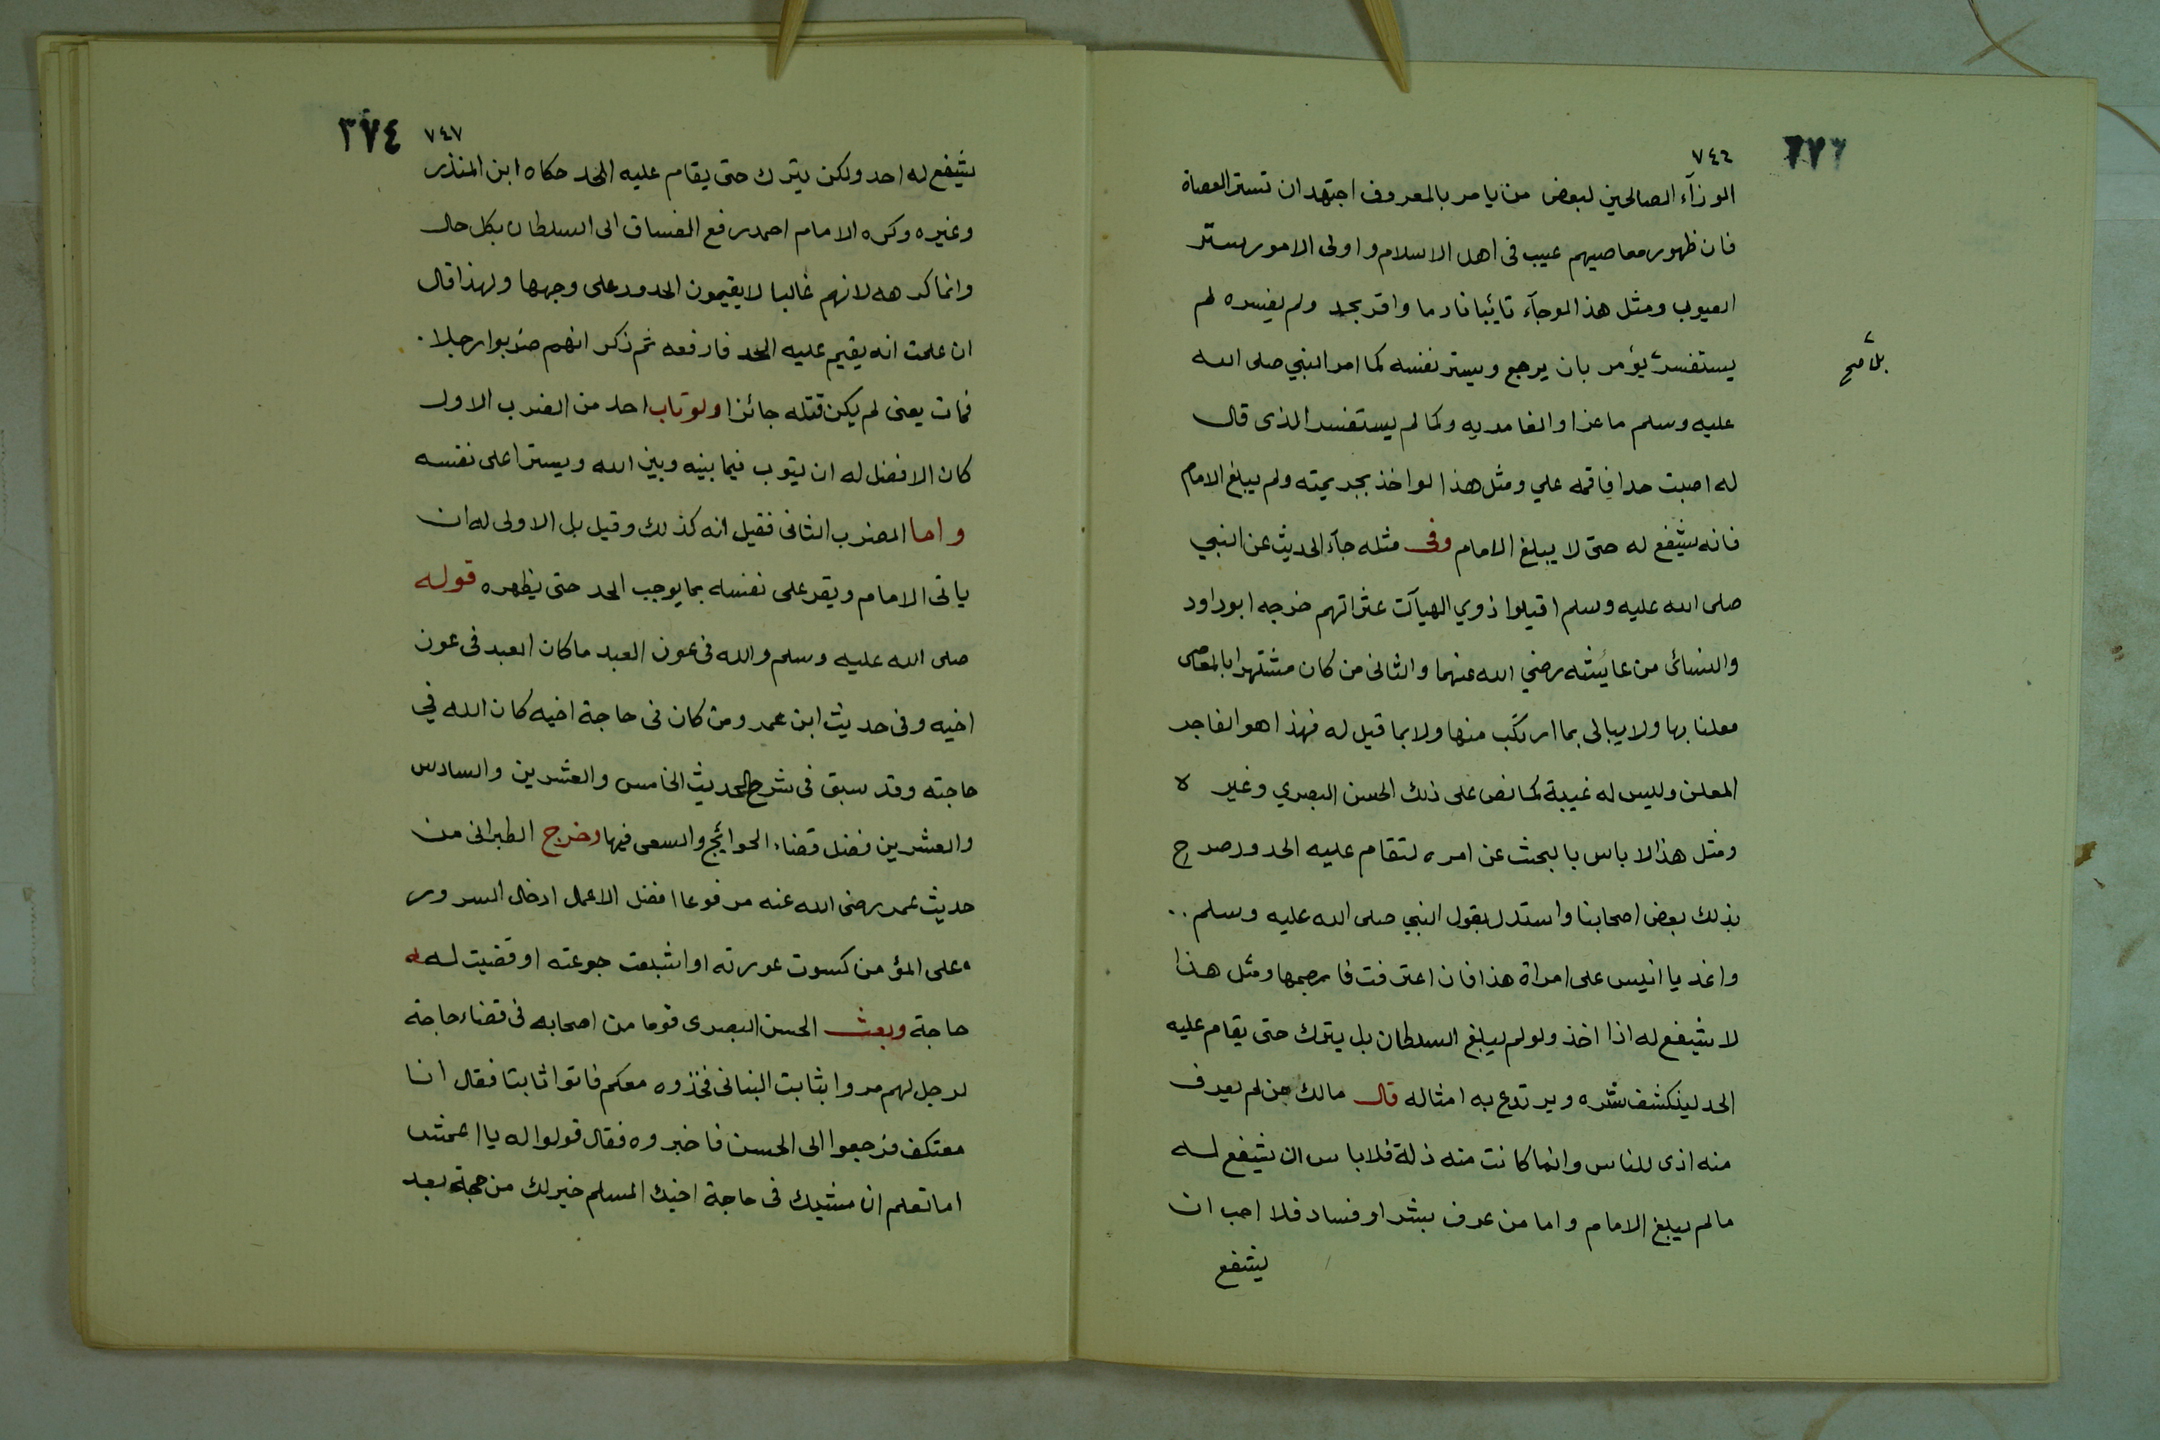 ٧٤٦
الوزرآء الصالحين لبعض من يامر بالمعروف اجتهد ان تستر العصاة
فان ظهور معاصيهم عيب فى اهل الاسلام واولى الامور ستر
العيوب ومثل هذا لوجآء تائبا نادما واقر بحد ولم يفسره لم
يستفسر يؤمر بان يرجع ويستر نفسه كما امر النبي صلى الله
بل صح
عليه وسلم ماعزا والغامديه وكما لم يستفسر الذى قال
له اصبت حدا فاقمه علي ومثل هذا لو اخذ بجريمته ولم يبلغ الامام
فانه يشفع له حتى لا يبلغ الامام وفى مثله جآء الحديث عن النبي
صلى الله عليه وسلم اقيلوا ذوي الهيآت عثراتهم خرجه ابو داود
والنسائى من عايشه رضي الله عنهما والثانى من كان مشتهرا بالمعاصى
معلنا بها ولا يبالى بما ارتكب منها ولا بما قيل له فهذا هو الفاجر
المعلن وليس له غيبة كما نص على ذلك الحسن البصري وغيره
ومثل هذا لا باس بالبحث عن امره لتقام عليه الحدود صرح
بذلك بعض اصحابنا واستدل بقول النبي صلى الله عليه وسلم..
واغد يا انيس على امراة هذا فان اعترفت فارجمها ومثل هذا
لا يشفع له اذا اخذ ولو لم يبلغ السلطان بل يترك حتى يقام عليه
الحد لينكشف شره ويرتدع به امثاله قال مالك من لم يعرف
منه اذى للناس وانما كانت منه زلة فلا باس ان يشفع له
مالم يبلغ الامام واما من عرف بشر او فساد فلا احب ان
يشفع
٧٤٧ ٣٧٤
يشفع له احد ولكن يترك حتى يقام عليه الحد حكاه ابن المنذر
وغيره وكره الامام احمد رفع الفساق الى السلطان بكل حال
وانما كرهه لانهم غالبا لا يقيمون الحدود على وجهها ولهذا قال
ان علمت انه يقيم عليه الحد فارفعه ثم ذكر انهم ضربوا رجلا.
فمات يعنى لم يكن قتله جائزا ولو تاب احد من الضرب الاول
كان الافضل له ان يتوب فيما بينه وبين الله ويسترا على نفسه
واما الضرب الثانى فقيل انه كذلك وقيل بل الاولى له ان
ياتى الامام ويقر على نفسه بما يوجب الحد حتى يطهره قوله
صلى الله عليه وسلم والله فى عون العبد ما كان العبد فى عون
اخيه وفى حديث ابن عمر ومن كان فى حاجة اخيه كان الله في
حاجته وقد سبق فى شرح الحديث الخامس والعشرين والسادس
والعشرين فضل قضاء الحوائج والسعى فيها وخرج الطبرانى من
حديث عمر رضى الله عنه مرفوعا افضل الاعمل ادخال السرور
على المؤمن كسوت عورته او اشبعت جوعته او قضيت له
حاجة وبعث الحسن البصرى قوما من اصحابه فى قضاء حاجة
لرجل لهم مروا بثابت البنانى فخذوه معكم فاتوا ثابتا فقال انا
معتكف فرجعوا الى الحسن فاخبروه فقال قولوا له يا اعمش
اما تعلم ان مشيك فى حاجة اخيك المسلم خير لك من حجة بعد